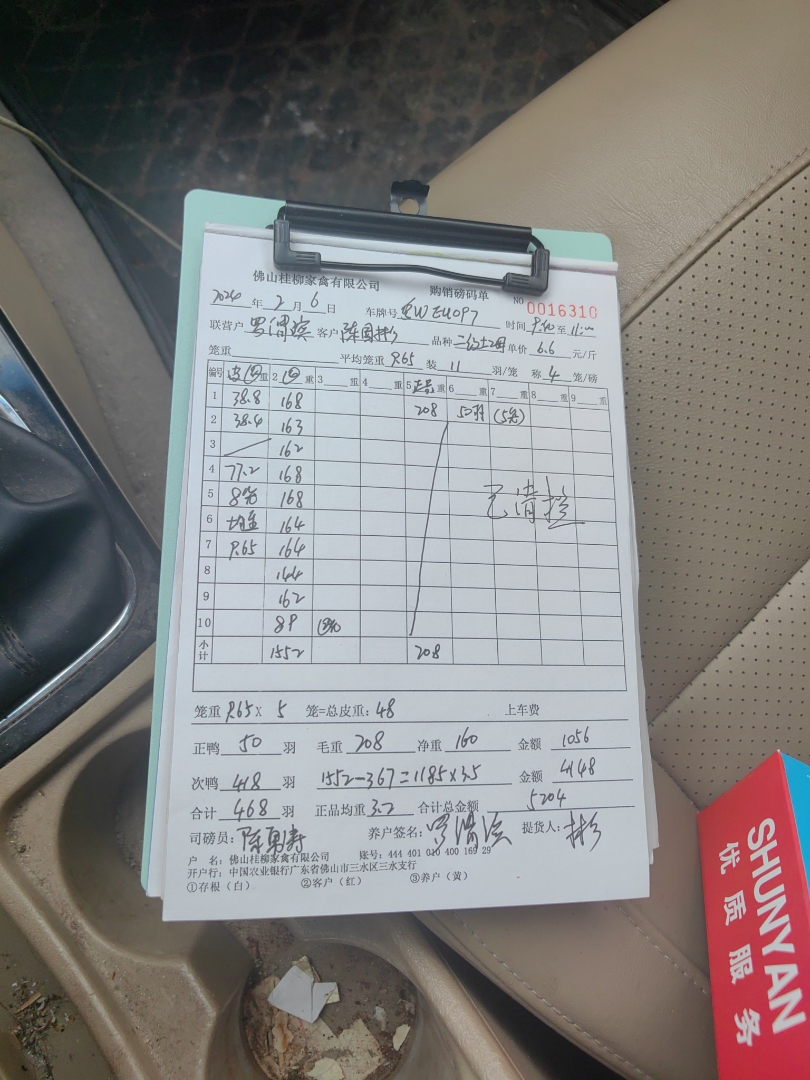 佛山桂柳家禽有限公司 购销磅码单
NO 0016310
2024 年 2 月 6 日 车牌号 时间 至
联营户 客户 品种 单价 6.6 元/斤
笼重 平均笼重 9.65 装 11 羽/笼 称 4 笼/磅
编号 重 2 重 3 重 4 重 5 正品 重 6 重 7 重 8 重 9 重
1 38.8 168 208 50羽 (5笼)
2 38.4 163
3 162
4 77.2 168
5 8笼 168
6 均重 164
7 9.65 164
8 144
9 162
10 89
小计 1552 208
笼重 9.65 X 5 笼=总皮重: 48 上车费
正鸭 50 羽 毛重 208 净重 160 金额 1056
次鸭 418 羽 1552-367=1185×3.5 金额 4148
合计 468 羽 正品均重 3.2 合计总金额 5204
司磅员: 养户签名: 提货人:
户 名: 佛山桂柳家禽有限公司 账号: 444 401 010 400 169 29
开户行: 中国农业银行广东省佛山市三水区三水支行
①存根(白) ②客户(红) ③养户(黄)
SHUNYAN
优质服务